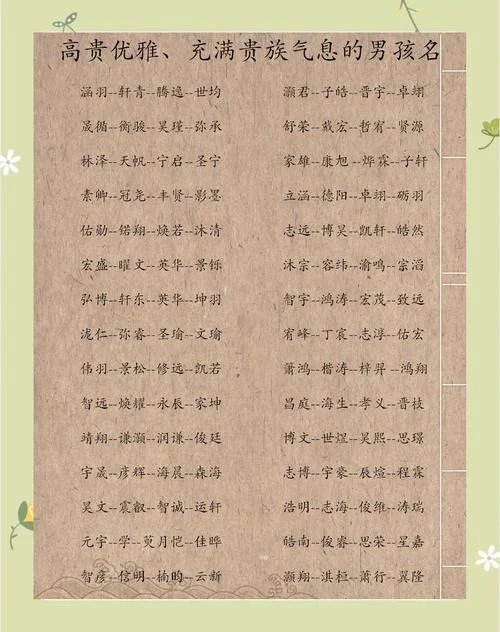 高贵优雅、充满贵族气息的男孩名
涵羽--轩青--腾逸--世均
晟循--衡骏--昊瑾--弥承
林泽--天帆--宁启--圣宁
素卿--冠尧--丰贤--影墨
佑勋--锘翔--焕若--沐清
宏盛--曜文--英华--景铄
弘博--轩东--英华--坤羽
泷仁--弥睿--圣瑜--文瑜
伟羽--景松--修远--凯若
智远--焕耀--永辰--家坤
靖翔--谦灏--润谦--俊廷
宇晟--彦辉--海晨--森海
昊文--震叡--智诚--运轩
元宇--学--荬月恺--佳晔
智彦--信明--楠昀--云新
灏君--子皓--晋宇--卓翊
舒荣--戴宏--哲宥--贤源
家雄--康旭--烨霖--子轩
立涵--德阳--卓翊--砺羽
志远--博昊--凯轩--皓然
沐宗--容纬--渝鸣--宗滔
智宇--鸿涛--宏茂--致远
宥峰--丁宸--志淳--佑宏
箫鸿--楷涛--梓羿--鸿翔
昌庭--海生--孝义--晋枝
博文--世煜--昊熙--思璟
志博--宇豪--辰煊--程霖
浩明--志海--俊维--涛瑞
皓南--俊睿--思荣--星嘉
灏翔--淇桓--萧行--翼隆